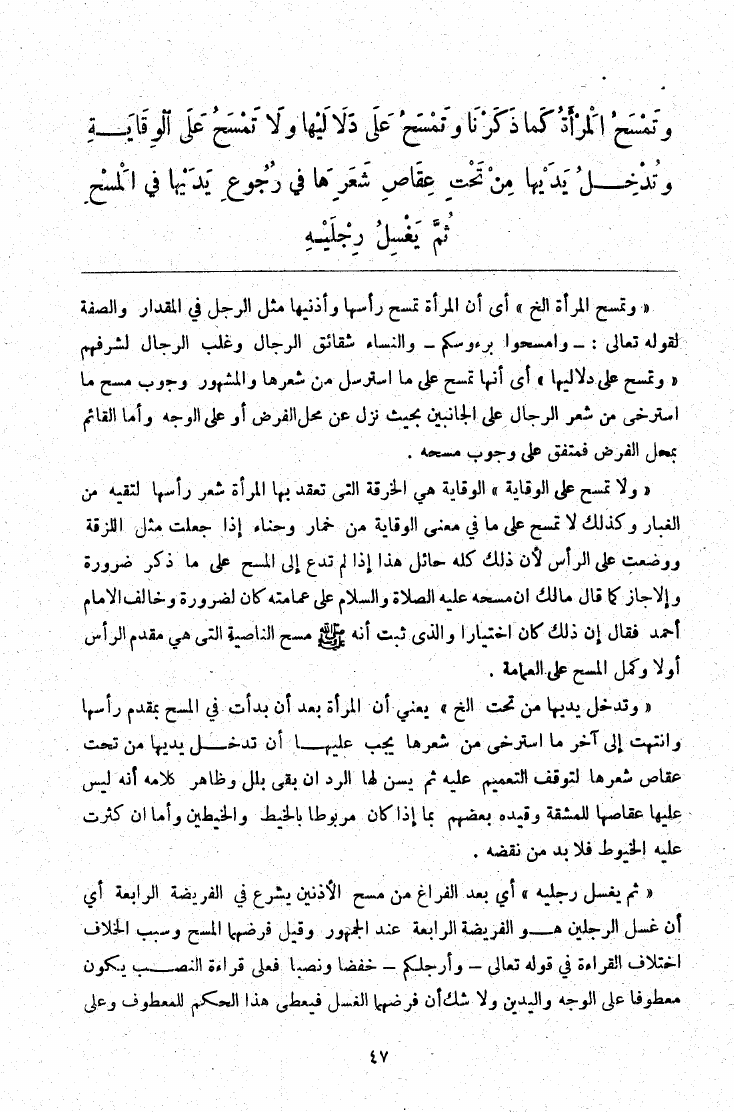 وَتَمْسَحُ الْمَرْأَةُ كَمَا ذَكَرْنَا وَتَمْسَحُ عَلَى دَلَالَيْهَا وَلَا تَمْسَحُ عَلَى الْوِقَايَةِ
وَتُدْخِلُ يَدَيْهَا مِنْ تَحْتِ عِقَاصِ شَعَرِهَا فِي رُجُوعِ يَدَيْهَا فِي الْمَسْحِ
ثُمَّ يَغْسِلُ رِجْلَيْهِ
« وتمسح المرأة الخ » أى أن المرأة تمسح رأسها وأذنيها مثل الرجل في المقدار والصفة
لقوله تعالى : ــ وامسحوا برءوسكم ــ والنساء شقائق الرجال وغلب الرجال لشرفهم
« وتمسح على دلاليها » أى أنها تمسح على ما استرسل من شعرها والمشهور وجوب مسح ما
استرخى من شعر الرجال على الجانبين بحيث نزل عن محل الفرض أو على الوجه وأما القائم
بمحل الفرض فمتفق على وجوب مسحه .
« ولا تمسح على الوقاية » الوقاية هي الخرقة التى تعقد بها المرأة شعر رأسها لتقيه من
الغبار وكذلك لا تمسح على ما في معنى الوقاية من خمار وحناء إذا جعلت مثل اللزقة
ووضعت على الرأس لأن ذلك كله حائل هذا إذا لم تدع إلى المسح على ما ذكر ضرورة
وإلا جاز كما قال مالك ان مسحه عليه الصلاة والسلام على عمامته كان لضرورة وخالف الامام
أحمد فقال إن ذلك كان اختيارا والذى ثبت أنه ﷺ مسح الناصية التى هي مقدم الرأس
أولا وكمل المسح على العمامة .
« وتدخل يديها من تحت الخ » يعني أن المرأة بعد أن بدأت في المسح بمقدم رأسها
وانتهت إلى آخر ما استرخى من شعرها يجب عليهـا أن تدخـل يديها من تحت
عقاص شعرها لتوقف التعميم عليه ثم يسن لها الرد ان بقى بلل وظاهر كلامه أنه ليس
عليها عقاصها للمشقة وقيده بعضهم بما إذا كان مربوطا بالخيط والخيطين وأما ان كثرت
عليه الخيوط فلا بد من نقضه .
« ثم يغسل رجليه » أي بعد الفراغ من مسح الأذنين يشرع في الفريضة الرابعة أي
أن غسل الرجلين هـو الفريضة الرابعة عند الجمهور وقيل فرضهما المسح وسبب الخلاف
اختلاف القراءة في قوله تعالى ــ وأرجلكم ــ خفضا ونصبا فعلى قراءة النصـب يكون
معطوفا على الوجه واليدين ولا شك أن فرضهما الغسل فيعطى هذا الحكم للمعطوف وعلى
٤٧